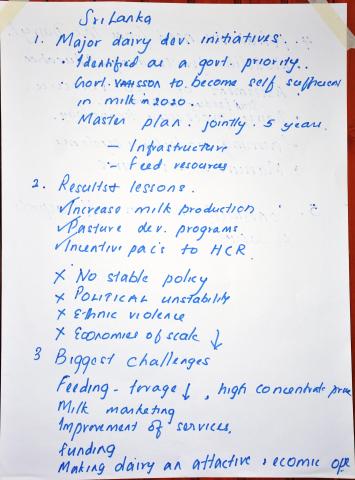 Sri Lanka
1. Major dairy dev. initiatives.
· Identified as a govt. priority.
· Govt. to become self sufficient
in milk in 2020.
· Master plan. jointly. 5 years.
- Infrastructure
- Feed resources
2. Results & lessons.
✓Increase milk production
✓Pasture dev. programs.
✓Incentive to HCR
X No stable policy
X POLITICAL unstability
X Ethnic violence
X Economies of scale ↓
3 Biggest challenges
Feeding - forage ↓, high concentrate
Milk marketing
Improvement of services,
funding
Making dairy an attactive, ecomic